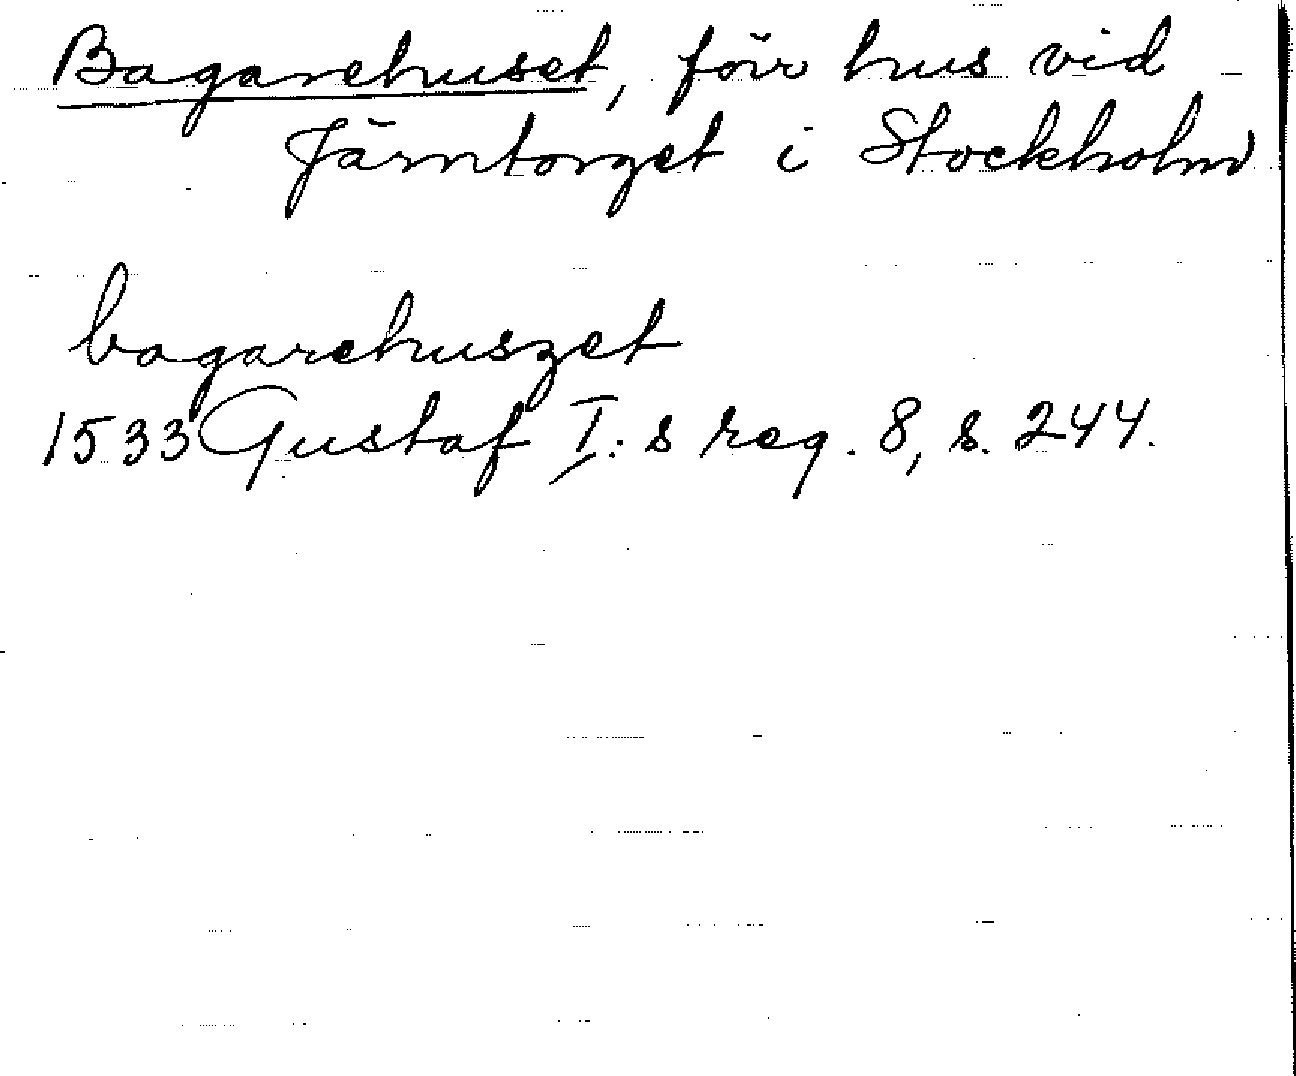 Bagarehuset, förr hus vid
Järntorget i Stockholm
bagarehuszet
1533 Gustaf I:s reg. 8, s. 244.